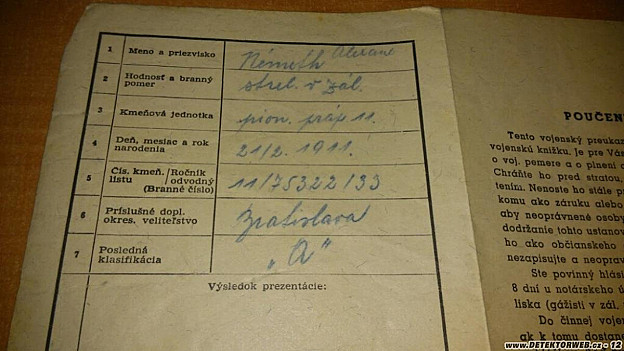 1 Meno a priezvisko Németh
2 Hodnosť a branný
pomer strel. v zál.
3 Kmeňová jednotka pion. práp 11.
4 Deň, mesiac a rok
narodenia 21/2. 1911.
5 Čís. kmeň. /Ročník
listu /odvodný
(Branné číslo) 11/75322/33
6 Príslušné dopl.
okres. veliteľstvo Bratislava
7 Posledná
klasifikácia „A"
Výsledok prezentácie:
POUČEN
Tento vojenský preukaz
vojenskú knižku. Je pre Vás
o voj. pomere a o plnení
Chráňte ho pred stratou,
tením. Nenoste ho stále pr
komu ako záruku alebo
aby neoprávnené osoby
dodržanie tohto ustanov
ho ako občianskeho
nezapisujte a neoprav
Ste povinný hlási
8 dní u notárskeho ú
liska (gážisti v zál.
Do činnej vojen
ak k tomu dostane
www.DETEKTORWEB.cz - 12